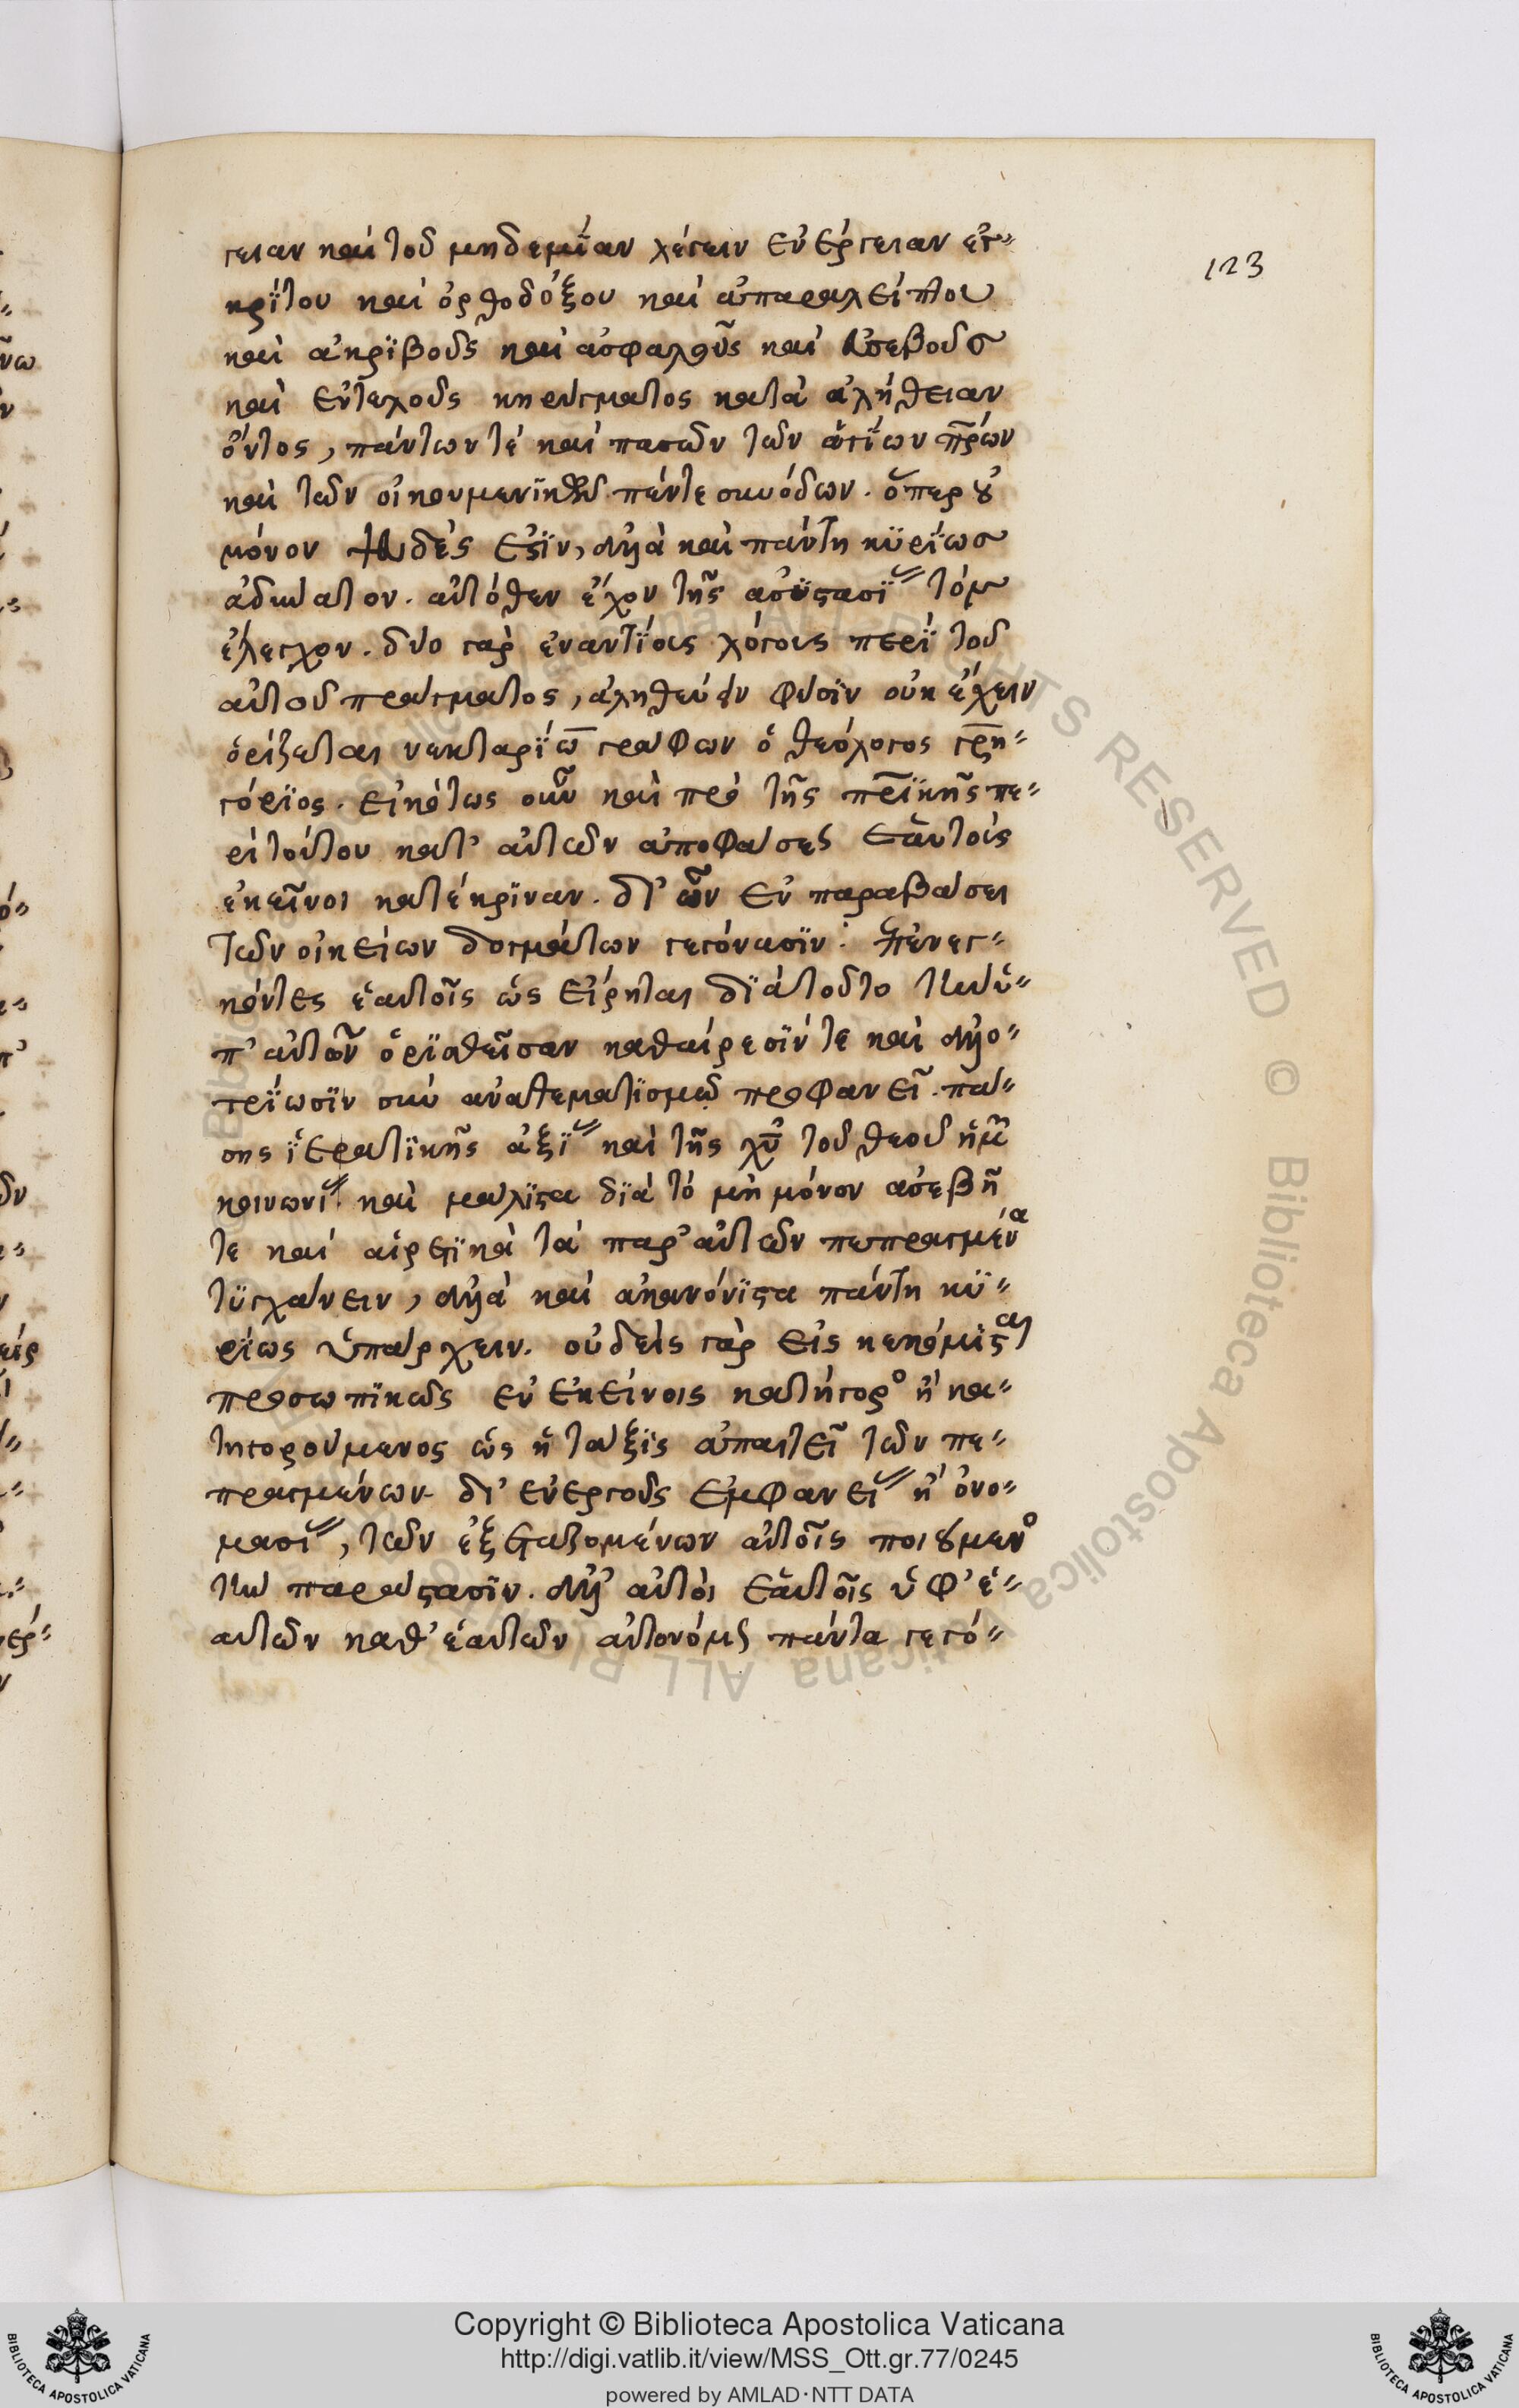 123
γειαν καὶ τοῦ μηδεμΐαν λέγειν ἐνέργειαν ἐγ-
κρΐτου καὶ ὀρθοδόξου καὶ ἀπαραλείπτου
καὶ ἀκρϊβοῦς καὶ ἀσφαλοῦς καὶ εὐσεβοῦς
καὶ ἐντελοῦς κηρύγματος κατὰ ἀλήθειαν
ὄντος, πάντων τὲ καὶ πασῶν τῶν ἁγΐων π̅ρ̅ων
καὶ τῶν οἰκουμενϊκῶν πέντε συνόδων. ὅπερ οὐ
μόνον ψευδές ἐστϊν, ἀλλὰ καὶ πάντη κϋρΐως
ἀδύνατον. αὐτόθεν ἔχον τῆς ἀσϋστασΐ τὸν
ἔλεγχον. δύο γὰρ ἐναντΐοις λόγοις περῒ τοῦ
αὐτοῦ πράγματος, ἀληθεύειν φύσϊν οὐκ ἔχειν
ὁρίζεται νεκταρΐω γράφων ὁ θεόλογος γρη-
γόρϊος. εἰκότως οὖν καὶ πρὸ τῆς π̅ρ̅ϊκῆς πε-
ρὶ τούτου κατ' αὐτῶν ἀποφάσεως ἑαυτοὺς
ἐκεῖνοι κατέκρϊναν. δι' ὧν ἐν παραβάσει
τῶν οἰκείων δογμάτων γεγόνασϊν. ἐπενεγ-
κόντες ἑαυτοῖς ὡς εἴρηται δϊὰ τοῦτο τὴν ὑ-
π' αὐτῶν ὁρϊσθεῖσαν καθαίρεσϊν τε καὶ ἀλλο-
τρΐωσϊν σὺν ἀναθεματϊσμῷ προφανεῖ. πά-
σης ϊερατϊκῆς ἀξΐ καὶ τῆς χ̅υ̅ τοῦ θεοῦ ἡμ
κοινωνΐ. καὶ μάλϊστα δϊὰ τὸ μὴ μόνον ἀσεβῆ
τε καὶ αἱρετϊκὰ τὰ παρ' αὐτῶν πεπραγμένα
τϋγχάνειν, ἀλλὰ καὶ ἀκανόνϊστα πάντη κϋ-
ρίως ὑπάρχειν. οὐδεὶς γὰρ εἰς κεκόμϊσται
προσωπϊκῶς ἐν ἐκείνοις κατήγορο ἢ κα-
τηγορούμενος ὡς ἡ τάξϊς ἀπαιτεῖ τῶν πε-
πραγμένων δι' ἐνεργοῦς ἐμφανεΐ ἢ ὀνο-
μασΐ, τῶν ἐξεταζομένων αὐτοῖς ποιούμενο
τὴν παράστασϊν. ἀλλ' αὐτοὶ ἑαυτοῖς ὑφ' ἑ-
αυτῶν καθ' ἑαυτῶν αὐτονόμως πάντα γεγό-
Copyright © Biblioteca Apostolica Vaticana
http://digi.vatlib.it/view/MSS_Ott.gr.77/0245
powered by AMLAD·NTT DATA